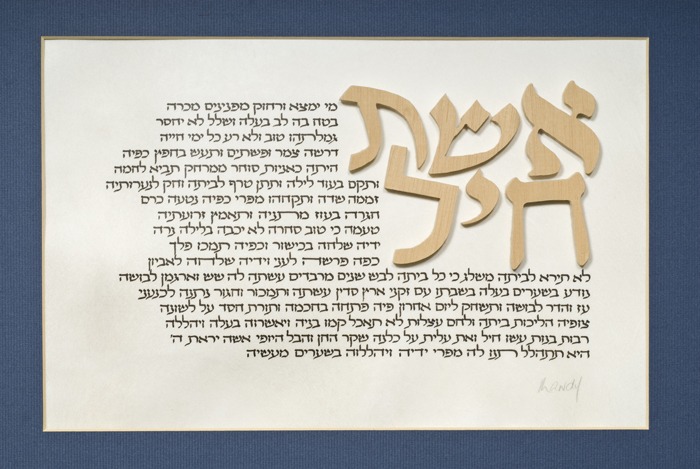 אשת
חיל
מי ימצא ורחוק מפנינים מכרה
בטח בה לב בעלה ושלל לא יחסר
גמלתהו טוב ולא רע כל ימי חייה
דרשה צמר ופשתים ותעש בחפץ כפיה
היתה כאניות סוחר ממרחק תביא לחמה
ותקם בעוד לילה ותתן טרף לביתה וחק לנערותיה
זממה שדה ותקחהו מפרי כפיה נטעה כרם
חגרה בעוז מתניה ותאמץ זרועתיה
טעמה כי טוב סחרה לא יכבה בלילה נרה
ידיה שלחה בכישור וכפיה תמכו פלך
כפה פרשה לעני וידיה שלחה לאביון
לא תירא לביתה משלג כי כל ביתה לבש שנים מרבדים עשתה לה שש וארגמן לבושה
נודע בשערים בעלה בשבתו עם זקני ארץ סדין עשתה ותמכור וחגור נתנה לכנעני
עז והדר לבושה ותשחק ליום אחרון פיה פתחה בחכמה ותורת חסד על לשונה
צופיה הליכות ביתה ולחם עצלות לא תאכל קמו בניה ויאשרוה בעלה ויהללה
רבות בנות עשו חיל ואת עלית על כלנה שקר החן והבל היופי אשה יראת ה'
היא תתהלל תנו לה מפרי ידיה ויהללוה בשערים מעשיה